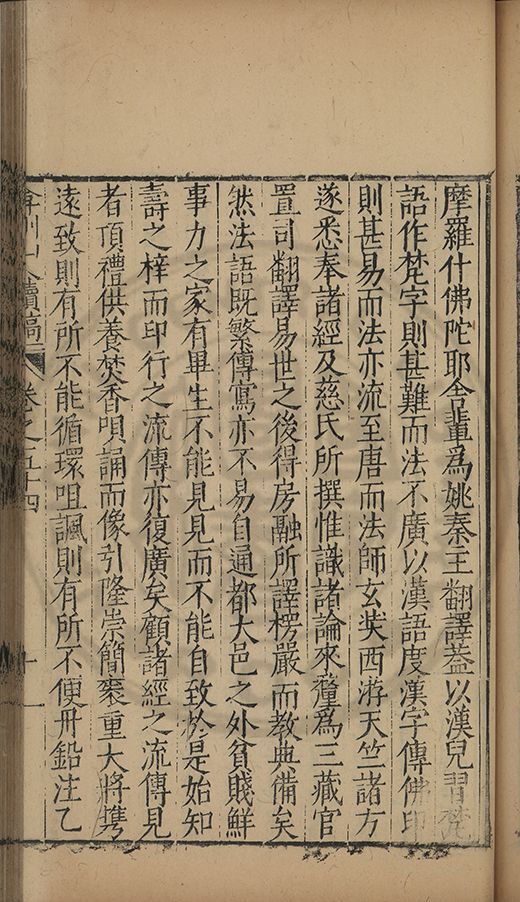 摩羅什佛陀耶舍輩為姚秦主翻譯葢以漢兒習梵
語作梵字則甚難而法不廣以漢語度漢字傳佛印
則甚易而法亦流至唐而法師玄奘西游天竺諸方
遂悉奉諸經及慈氏所撰惟識諸論來釐為三藏官
置司翻譯易世之後得房融所譯楞嚴而教典備矣
然法語既繁傳寫亦不易自通都大邑之外貧賤鮮
事力之家有畢生不能見見而不能自致於是始知
壽之梓而印行之流傳亦復廣矣顧諸經之流傳見
者頂禮供養焚香唄誦而像引隆崇簡袠重大將擕
遠致則有所不能循環咀諷則有所不便丹鉛注乙
卷之五十四